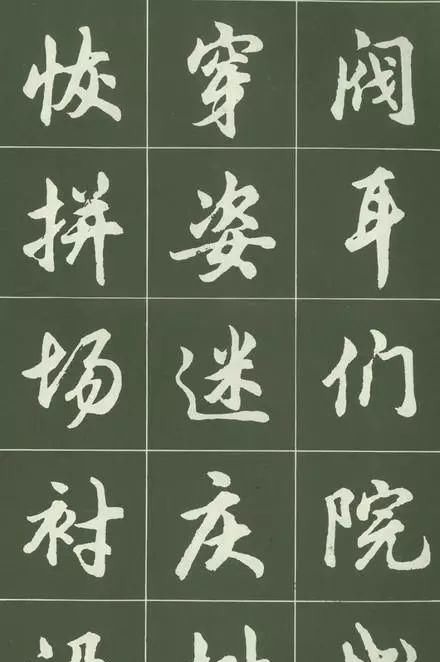 阀耳们院
穿姿迷庆
恢拼场衬